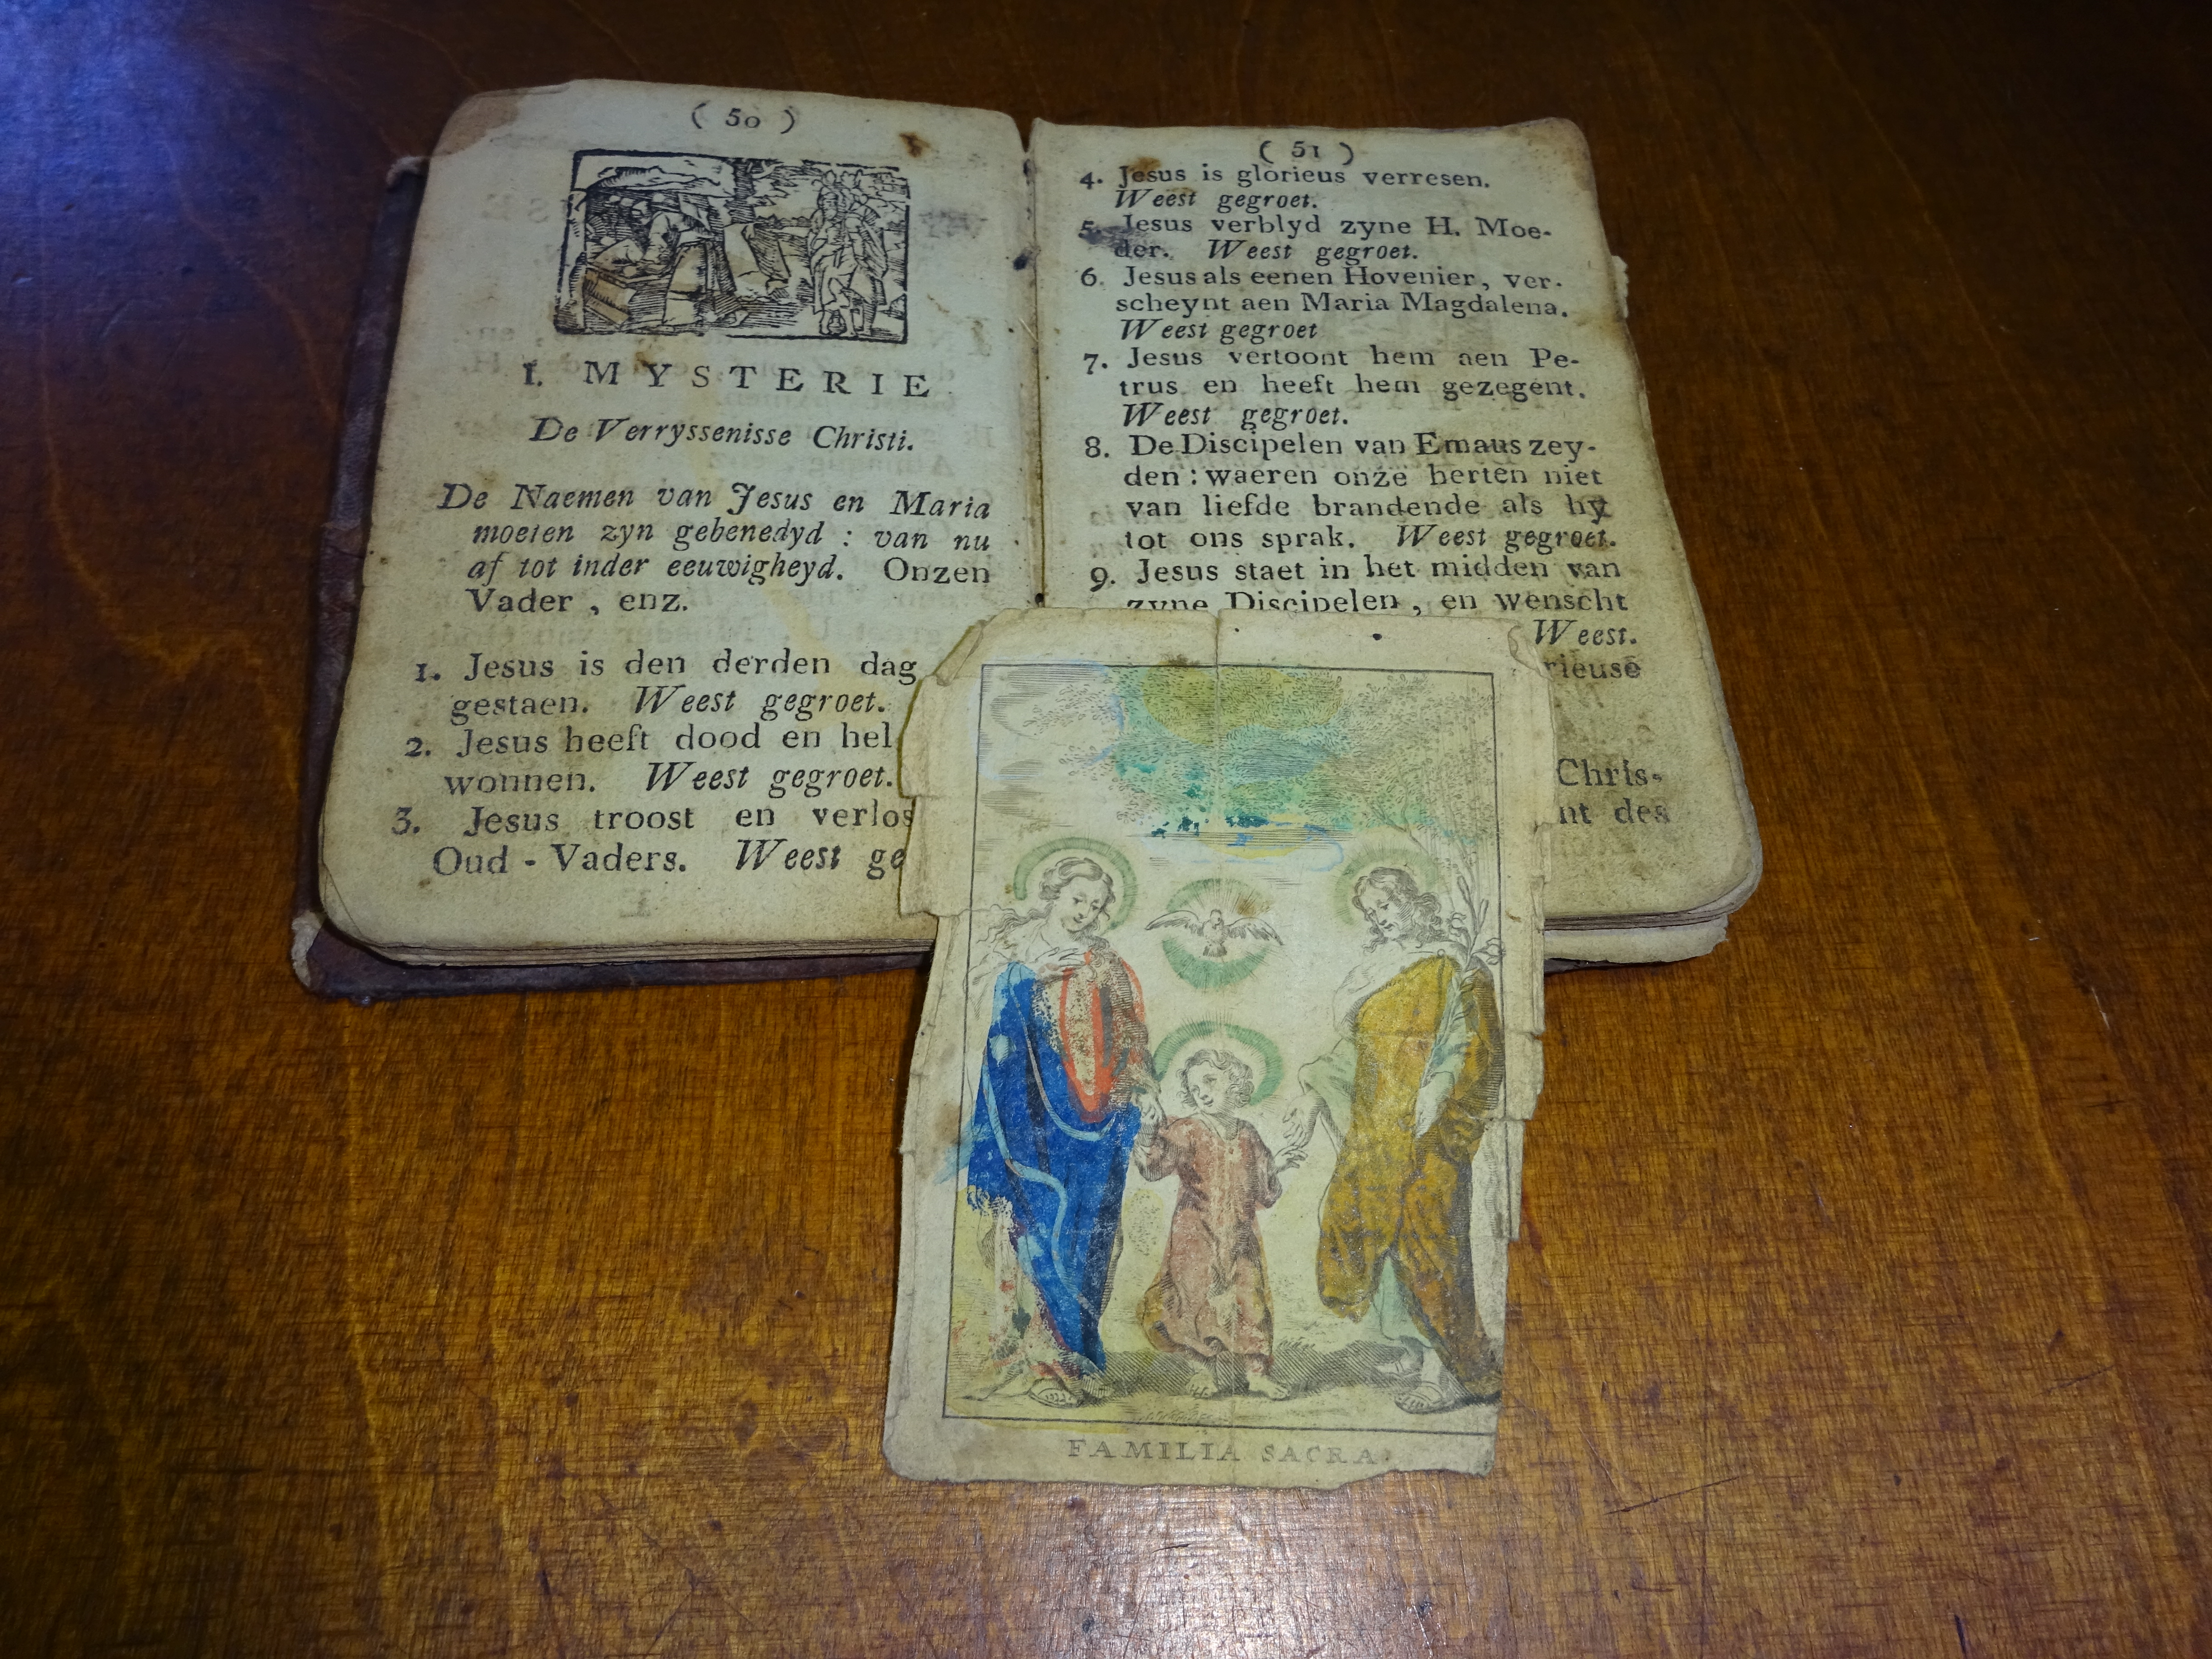 ( 50 )
I. MYSTERIE
De Verryssenisse Christi.
De Naemen van Jesus en Maria
moeten zyn gebenedyd : van nu
af tot inder eeuwigheyd. Onzen
Vader , enz.
1. Jesus is den derden dag
gestaen. Weest gegroet.
2. Jesus heeft dood en hel
wonnen. Weest gegroet.
3. Jesus troost en verlos
Oud - Vaders. Weest ge
( 51 )
4. Jesus is glorieus verresen.
Weest gegroet.
5. Jesus verblyd zyne H. Moe-
der. Weest gegroet.
6. Jesus als eenen Hovenier, ver-
scheynt aen Maria Magdalena.
Weest gegroet
7. Jesus vertoont hem aen Pe-
trus en heeft hem gezegent.
Weest gegroet.
8. De Discipelen van Emaus zey-
den : waeren onze herten niet
van liefde brandende als hy
tot ons sprak. Weest gegroet.
9. Jesus staet in het midden van
zyne Discipelen , en wenscht
Weest.
rieuse
Chris-
nt des
FAMILIA SACRA